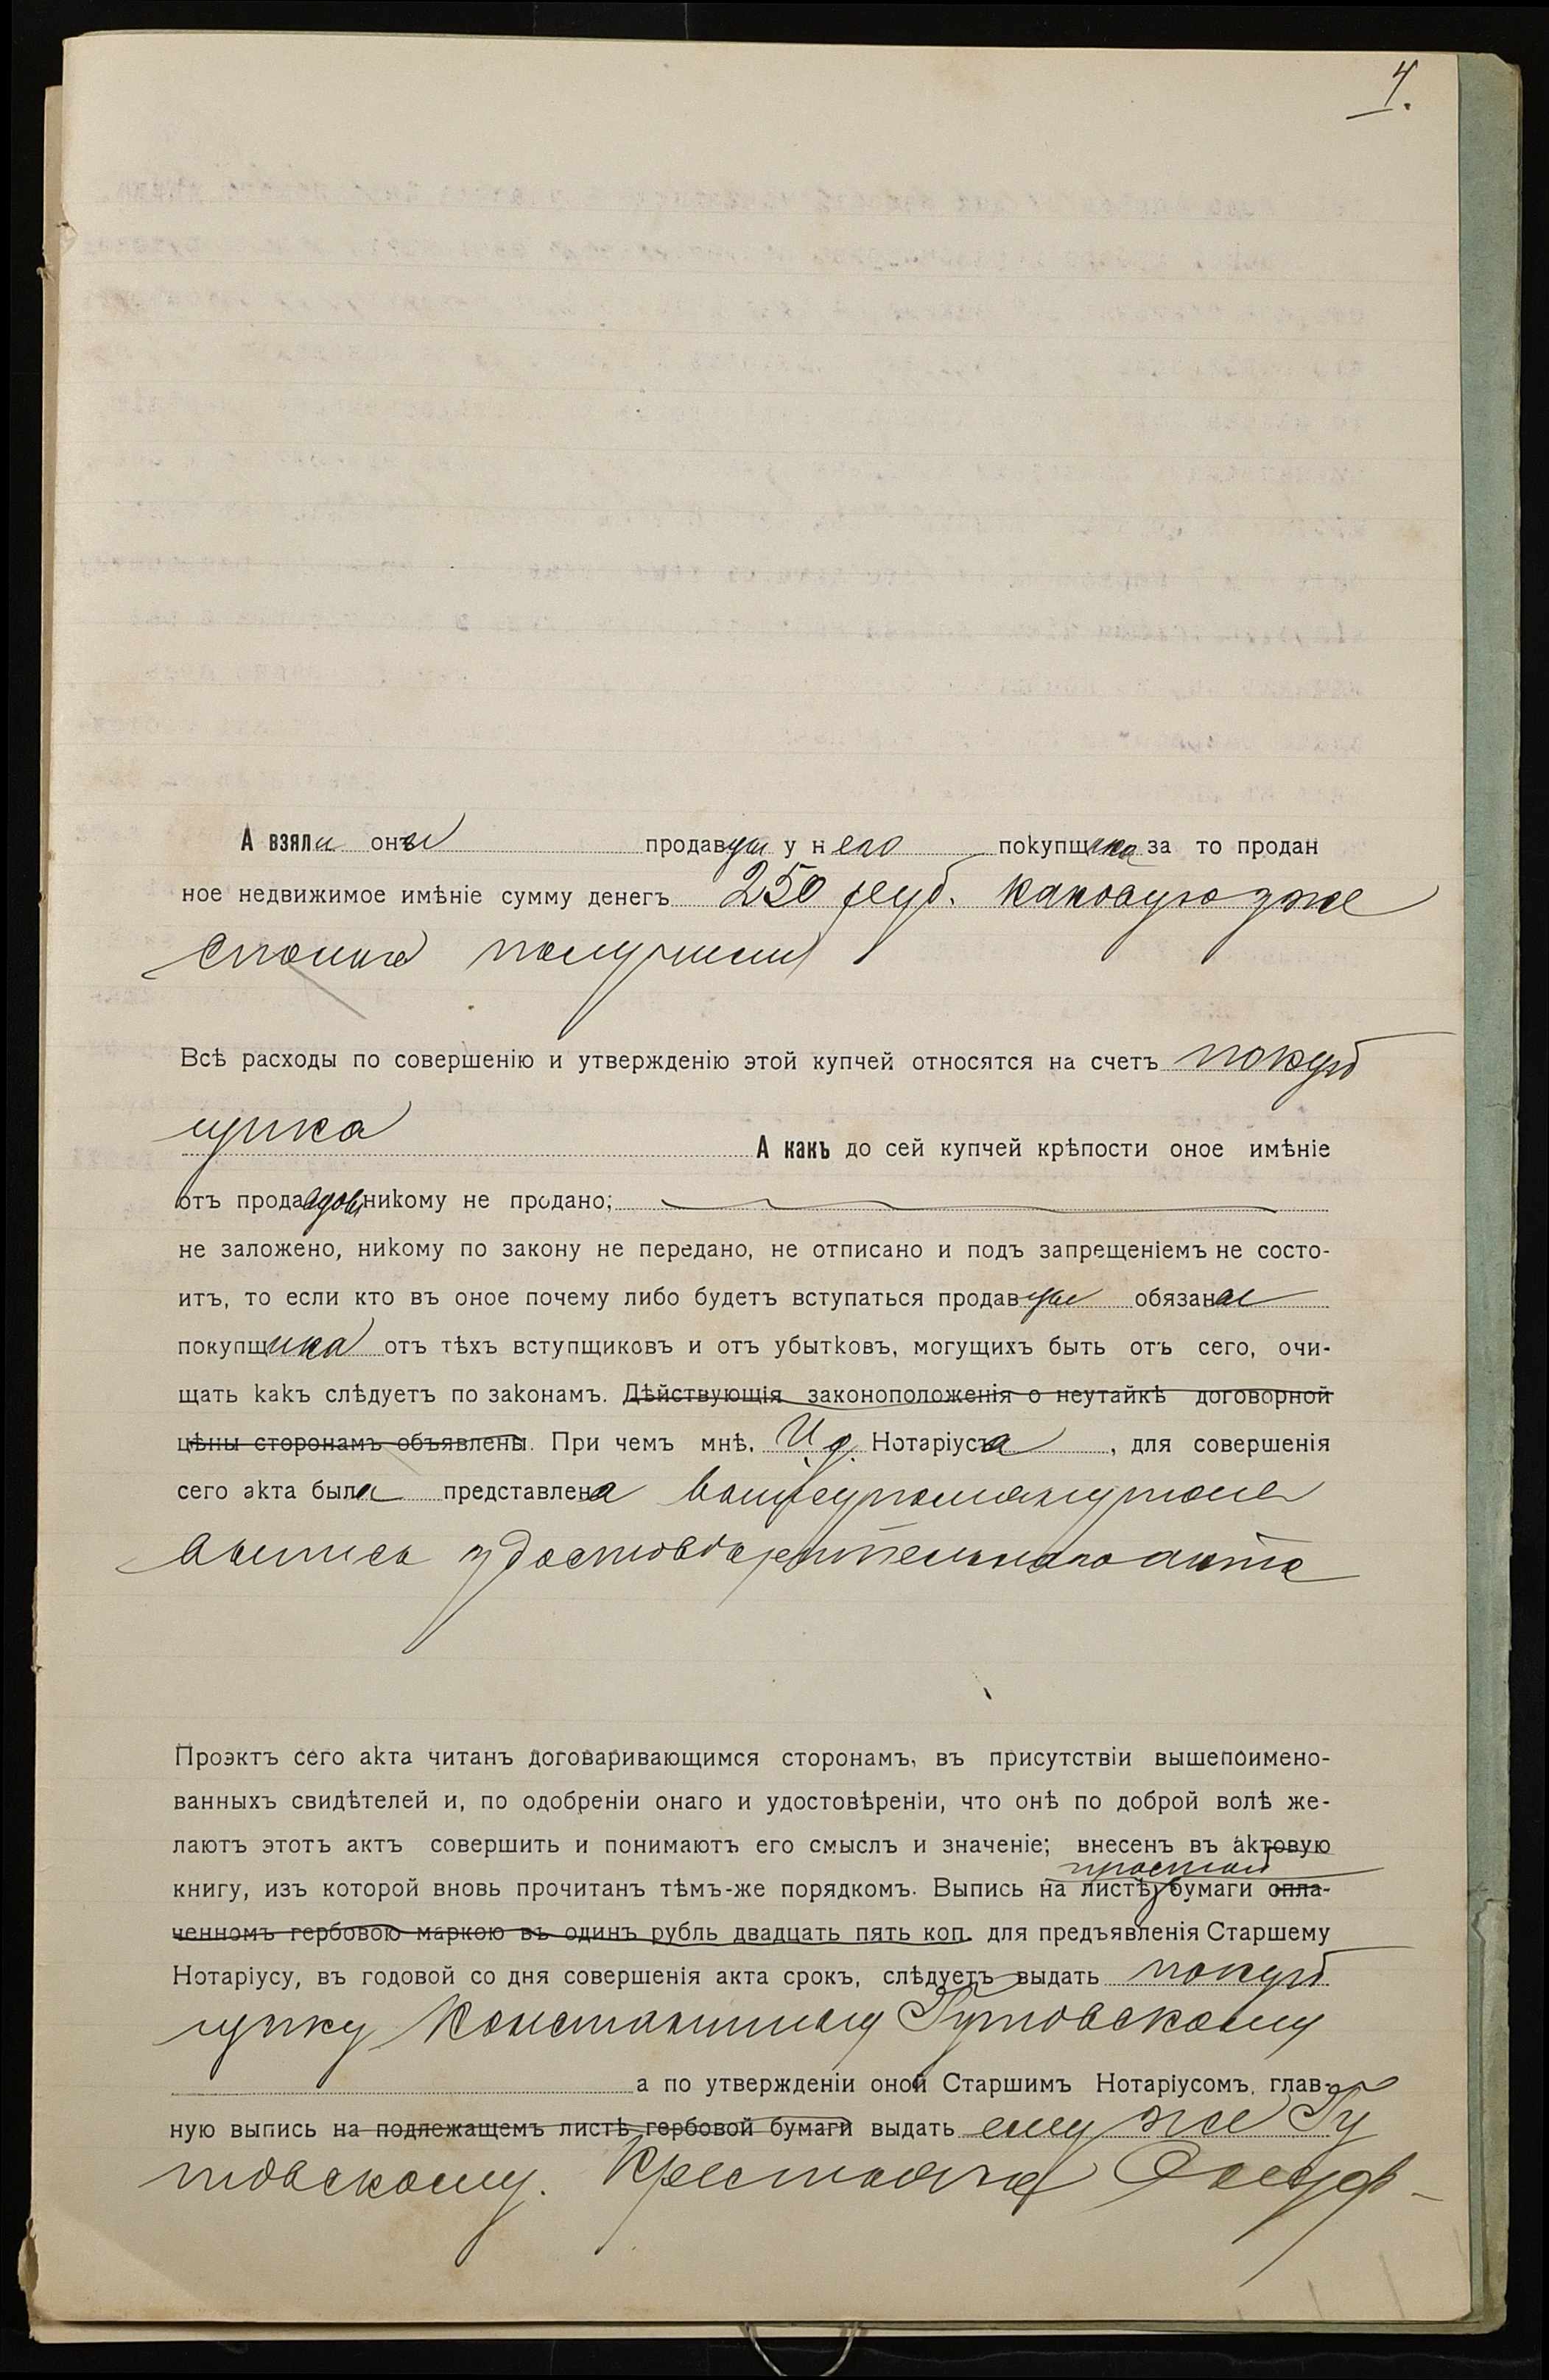 4.
А взяли они продавцы у него покупщика за то продан
ное недвижимое имѣніе сумму денегъ 250 руб. каковую уже
сполна получили
Всѣ расходы по совершенію и утвержденію этой купчей относятся на счетъ покуп
щика А какъ до сей купчей крѣпости оное имѣніе
отъ продавцовъ никому не продано;
не заложено, никому по закону не передано, не отписано и подъ запрещеніемъ не состо-
итъ, то если кто въ оное почему либо будетъ вступаться продавцы обязаны
покупщика отъ тѣхъ вступщиковъ и отъ убытковъ, могущихъ быть отъ сего, очи-
щать какъ слѣдуетъ по законамъ. Дѣйствующія законоположенія о неутайкѣ договорной
цѣны сторонамъ объявлены. При чемъ мнѣ, И. д. Нотаріуса, для совершенія
сего акта была представлена вышеупомянутая
выпись удостовѣрительнаго акта
Проэктъ сего акта читанъ договаривающимся сторонамъ, въ присутствіи вышепоимено-
ванныхъ свидѣтелей и, по одобреніи онаго и удостовѣреніи, что онѣ по доброй волѣ же-
лаютъ этотъ актъ совершить и понимаютъ его смыслъ и значеніе; внесенъ въ актовую
простой
книгу, изъ которой вновь прочитанъ тѣмъ-же порядкомъ. Выпись на листѣ бумаги опла-
ченномъ гербовою маркою въ одинъ рубль двадцать пять коп. для предъявленія Старшему
Нотаріусу, въ годовой со дня совершенія акта срокъ, слѣдуетъ выдать покуп
щику Константину Гутовскому
а по утвержденіи оной Старшимъ Нотаріусомъ, глав-
ную выпись на подлежащемъ листѣ гербовой бумаги выдать ему же Гу
товскому.